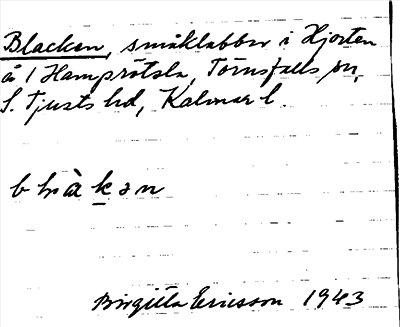 Blacken, småklabbar i Hjorten
å / Hamprötsla, Törnsfalls sn,
S. Tjusts hd, Kalmar l.
Birgitta Ericsson 1943